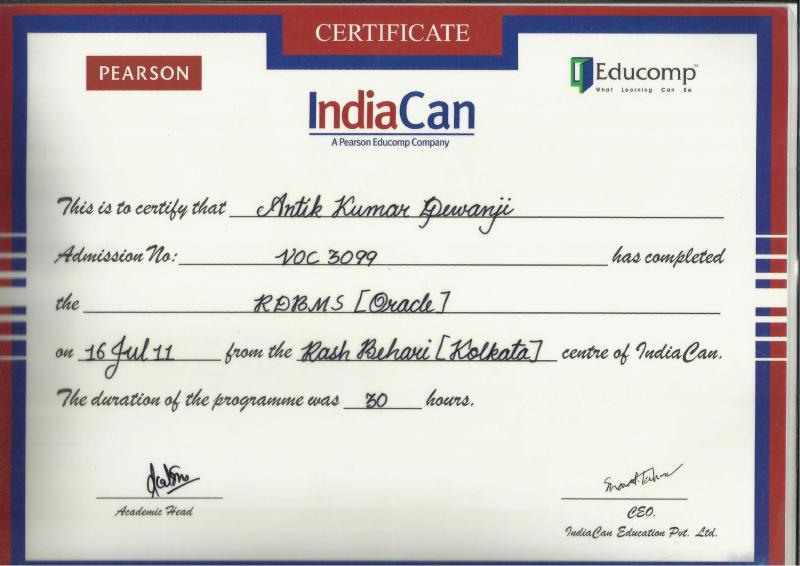 CERTIFICATE
PEARSON
Educomp™
What Learning Can Be
IndiaCan
A Pearson Educomp Company
This is to certify that Antik Kumar Dewanji
Admission No: VOC 3099 has completed
the RDBMS [Oracle]
on 16 Jul 11 from the Rash Behari [Kolkata] centre of IndiaCan.
The duration of the programme was 30 hours.
Academic Head
CEO.
IndiaCan Education Pvt. Ltd.